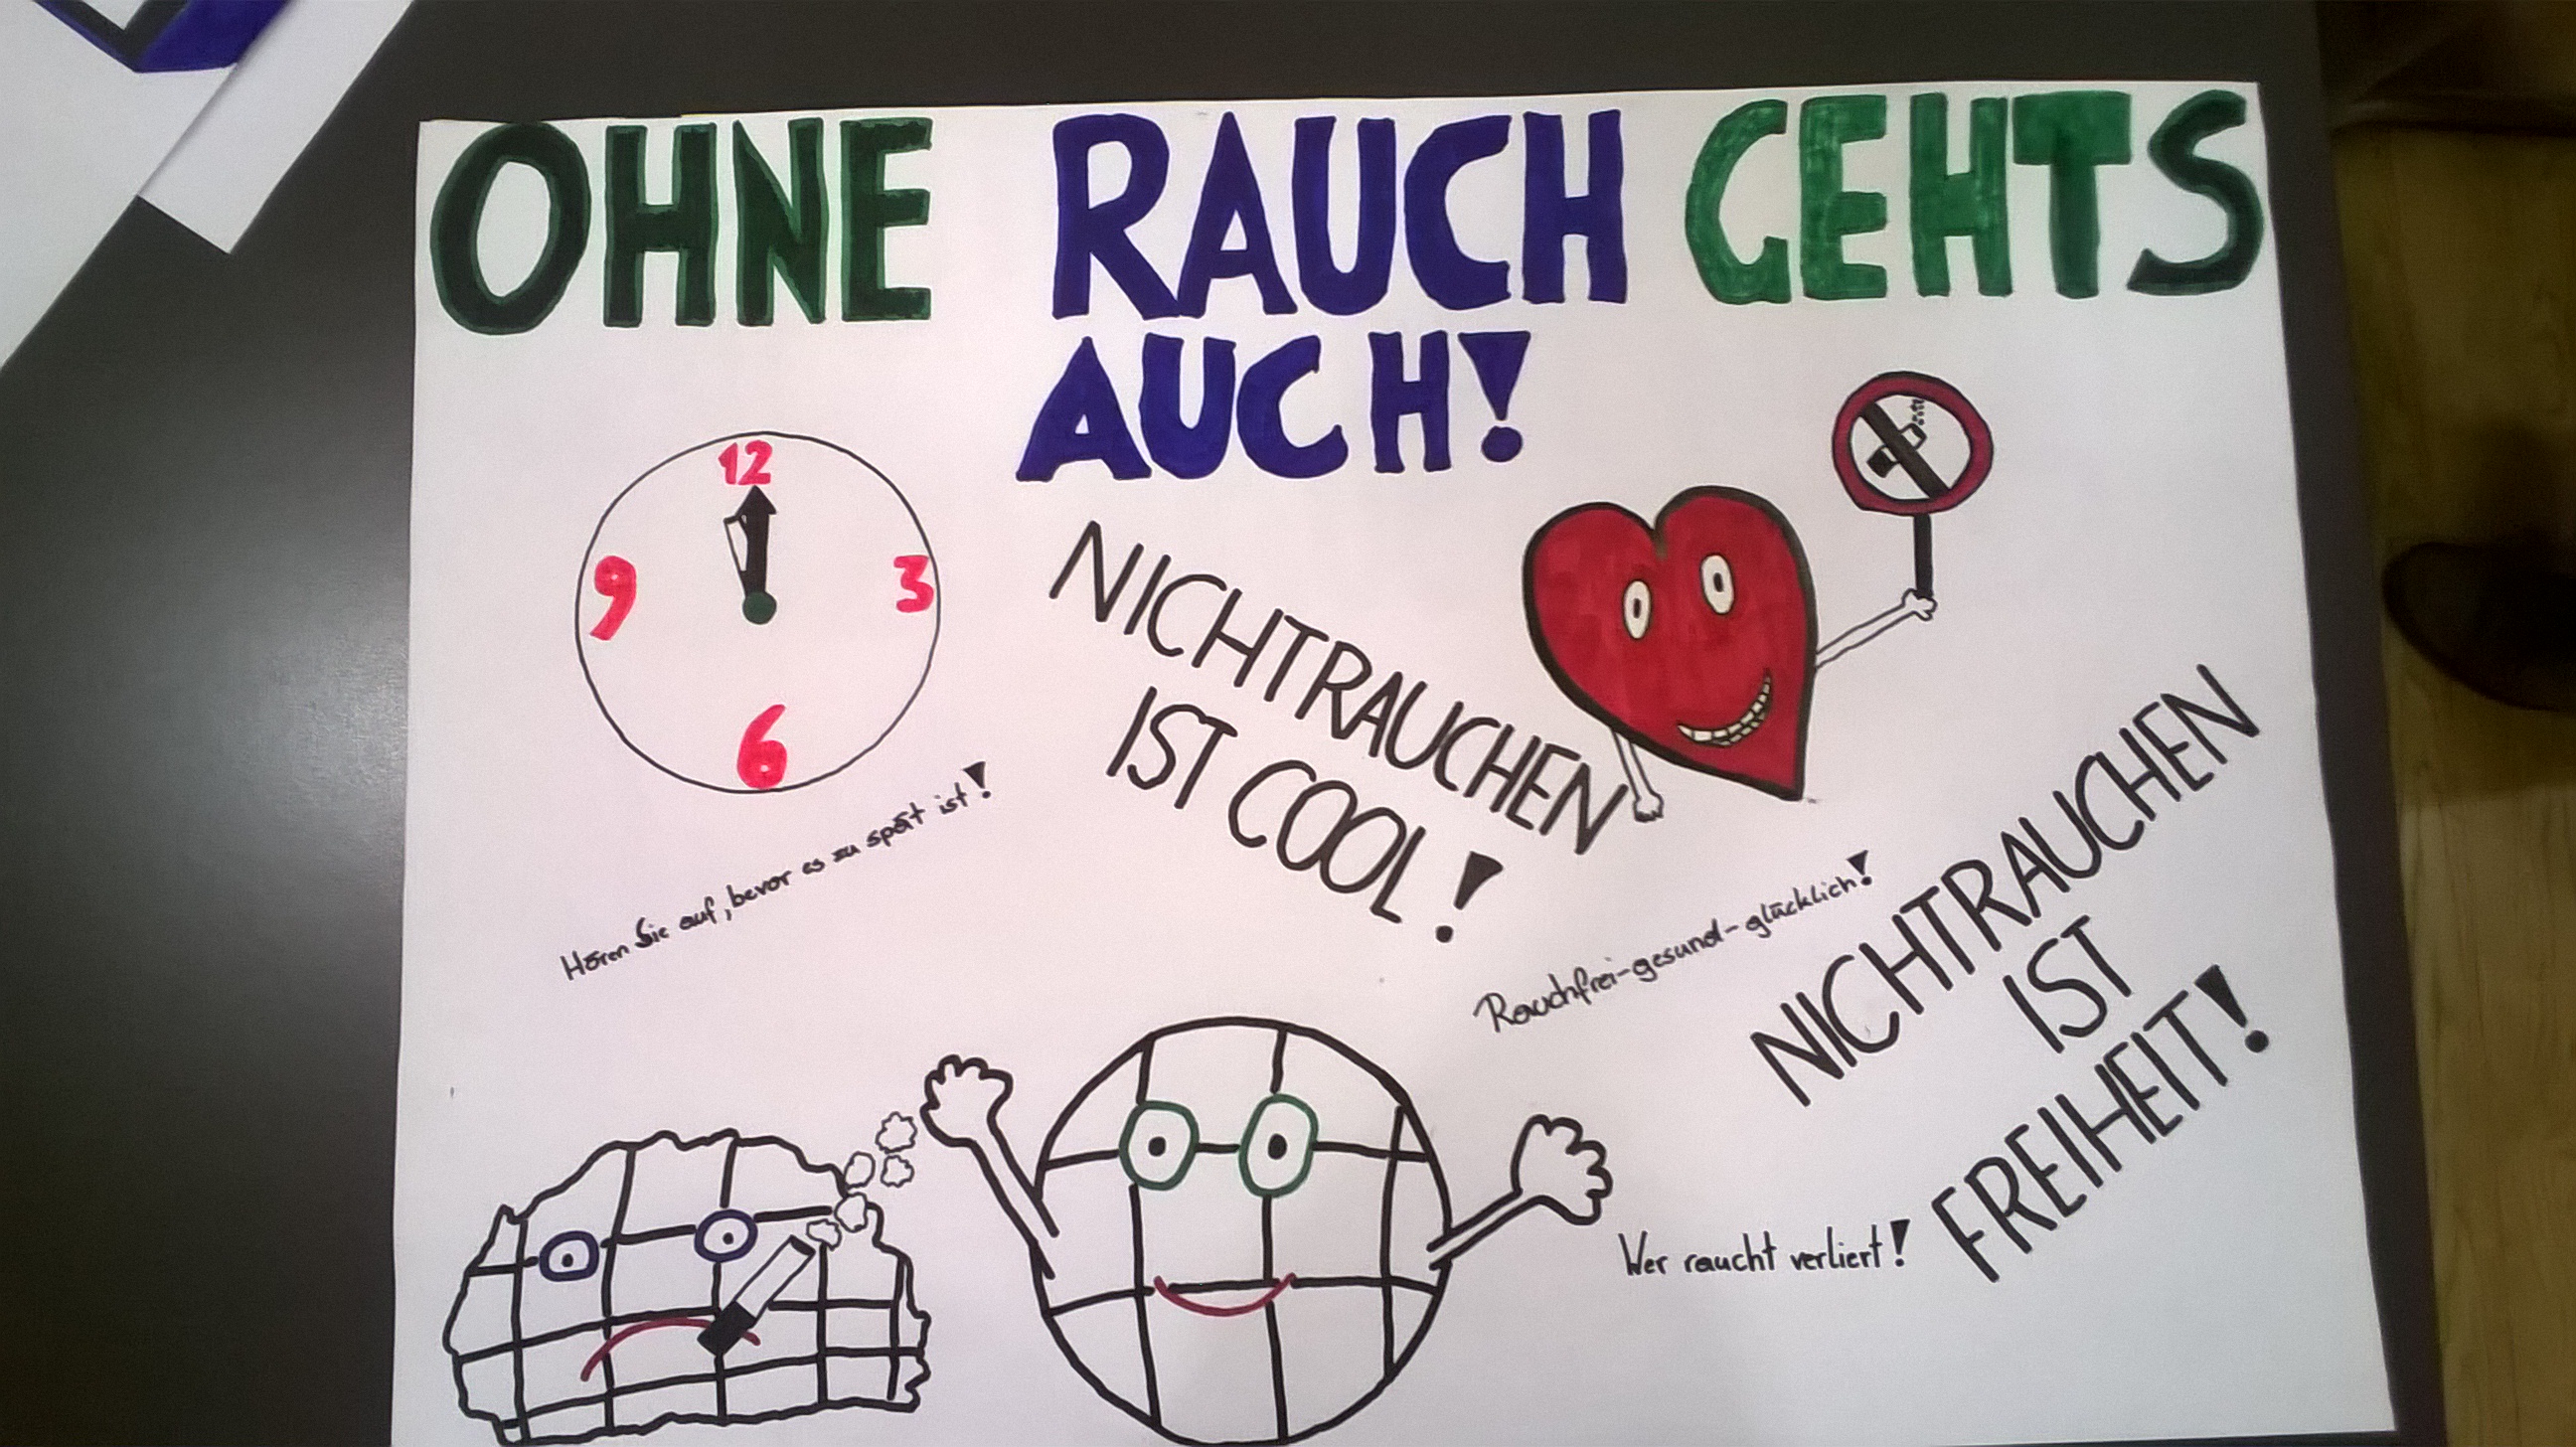 OHNE RAUCH GEHTS
AUCH!
12
9
3
6
NICHTRAUCHEN
IST COOL!
Hören Sie auf, bevor es zu spät ist!
Rauchfrei-gesund-glücklich!
NICHTRAUCHEN
IST
FREIHEIT!
Wer raucht verliert!